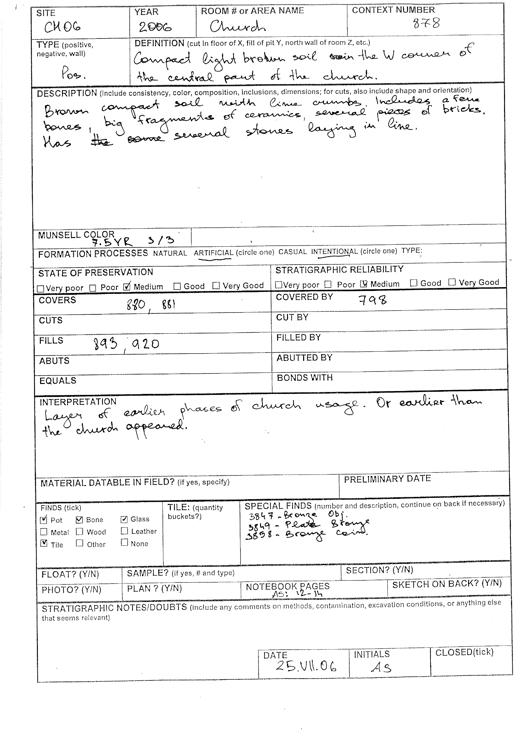 SITE YEAR ROOM # or AREA NAME CONTEXT NUMBER
CH06 2006 Church 878
TYPE (positive, negative, wall) DEFINITION (cut in floor of X, fill of pit Y, north wall of room Z, etc.)
Pos. Compact light brown soil in the W corner of
the central part of the church.
DESCRIPTION (include consistency, color, composition, inclusions, dimensions; for cuts, also include shape and orientation)
Brown compact soil with lime crumbs. Includes a few
bones, big fragments of ceramics, several pieces of bricks.
Has the some several stones laying in line.
MUNSELL COLOR
7.5YR 3/3
FORMATION PROCESSES NATURAL ARTIFICIAL (circle one) CASUAL INTENTIONAL (circle one) TYPE:
STATE OF PRESERVATION STRATIGRAPHIC RELIABILITY
☐Very poor ☐ Poor ☑ Medium ☐ Good ☐ Very Good ☐Very poor ☐ Poor ☑ Medium ☐ Good ☐ Very Good
COVERS 880, 881 COVERED BY 798
CUTS CUT BY
FILLS 893, 920 FILLED BY
ABUTS ABUTTED BY
EQUALS BONDS WITH
INTERPRETATION
Layer of earlier phases of church usage. Or earlier than
the church appeared.
MATERIAL DATABLE IN FIELD? (if yes, specify) PRELIMINARY DATE
FINDS (tick) TILE: (quantity buckets?) SPECIAL FINDS (number and description, continue on back if necessary)
☑ Pot ☑ Bone ☑ Glass
☐ Metal ☐ Wood ☐ Leather
☑ Tile ☐ Other ☐ None
3847 - Bronze Obj.
3849 - Plate Bronze
3858 - Bronze Coin.
FLOAT? (Y/N) SAMPLE? (if yes, # and type) SECTION? (Y/N)
PHOTO? (Y/N) PLAN ? (Y/N) NOTEBOOK PAGES SKETCH ON BACK? (Y/N)
AS: 12-14
STRATIGRAPHIC NOTES/DOUBTS (Include any comments on methods, contamination, excavation conditions, or anything else
that seems relevant)
DATE INITIALS CLOSED(tick)
25.VII.06 AS